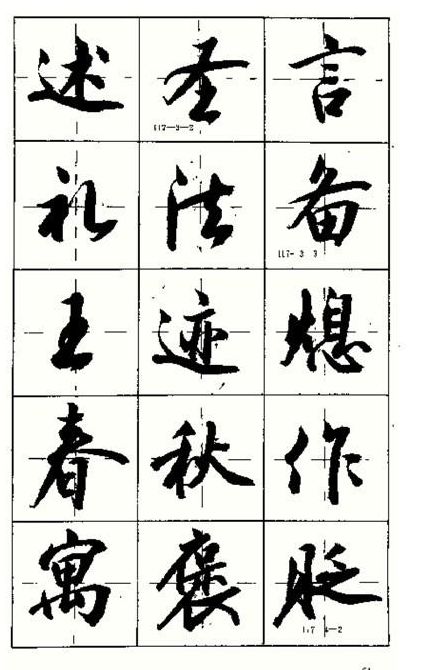 述圣言
117-3-2
礼法备
117-3 3
王迹熄
春秋作
寓褒贬
117 4-2